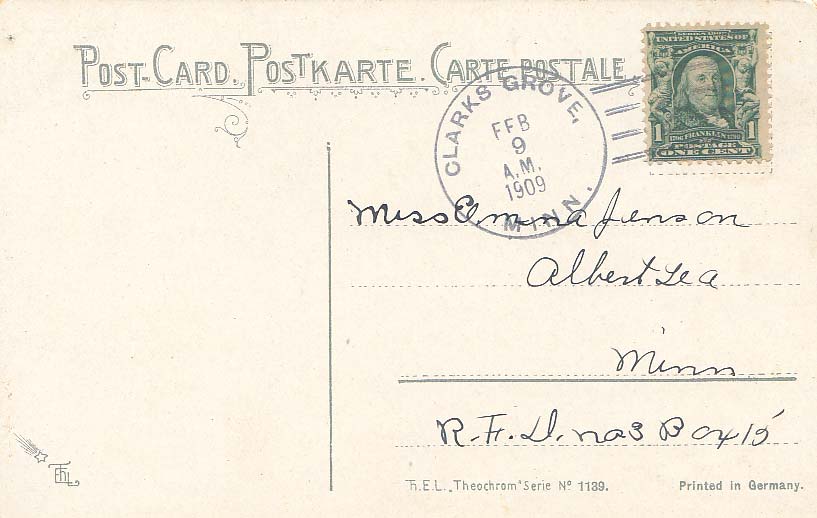 POST-CARD. POSTKARTE. CARTE POSTALE
CLARKS GROVE,
FEB
9
A.M.
1909
MINN.
SERIES 1902
UNITED STATES OF
AMERICA
1 1706 FRANKLIN 1790 1
POSTAGE
ONE CENT
Miss Emma Jenson
Albert Lea
Minn
R.F.D. no 3 Box 15
Th.E.L. „Theochrom" Serie Nº 1139.
Printed in Germany.
ThEL